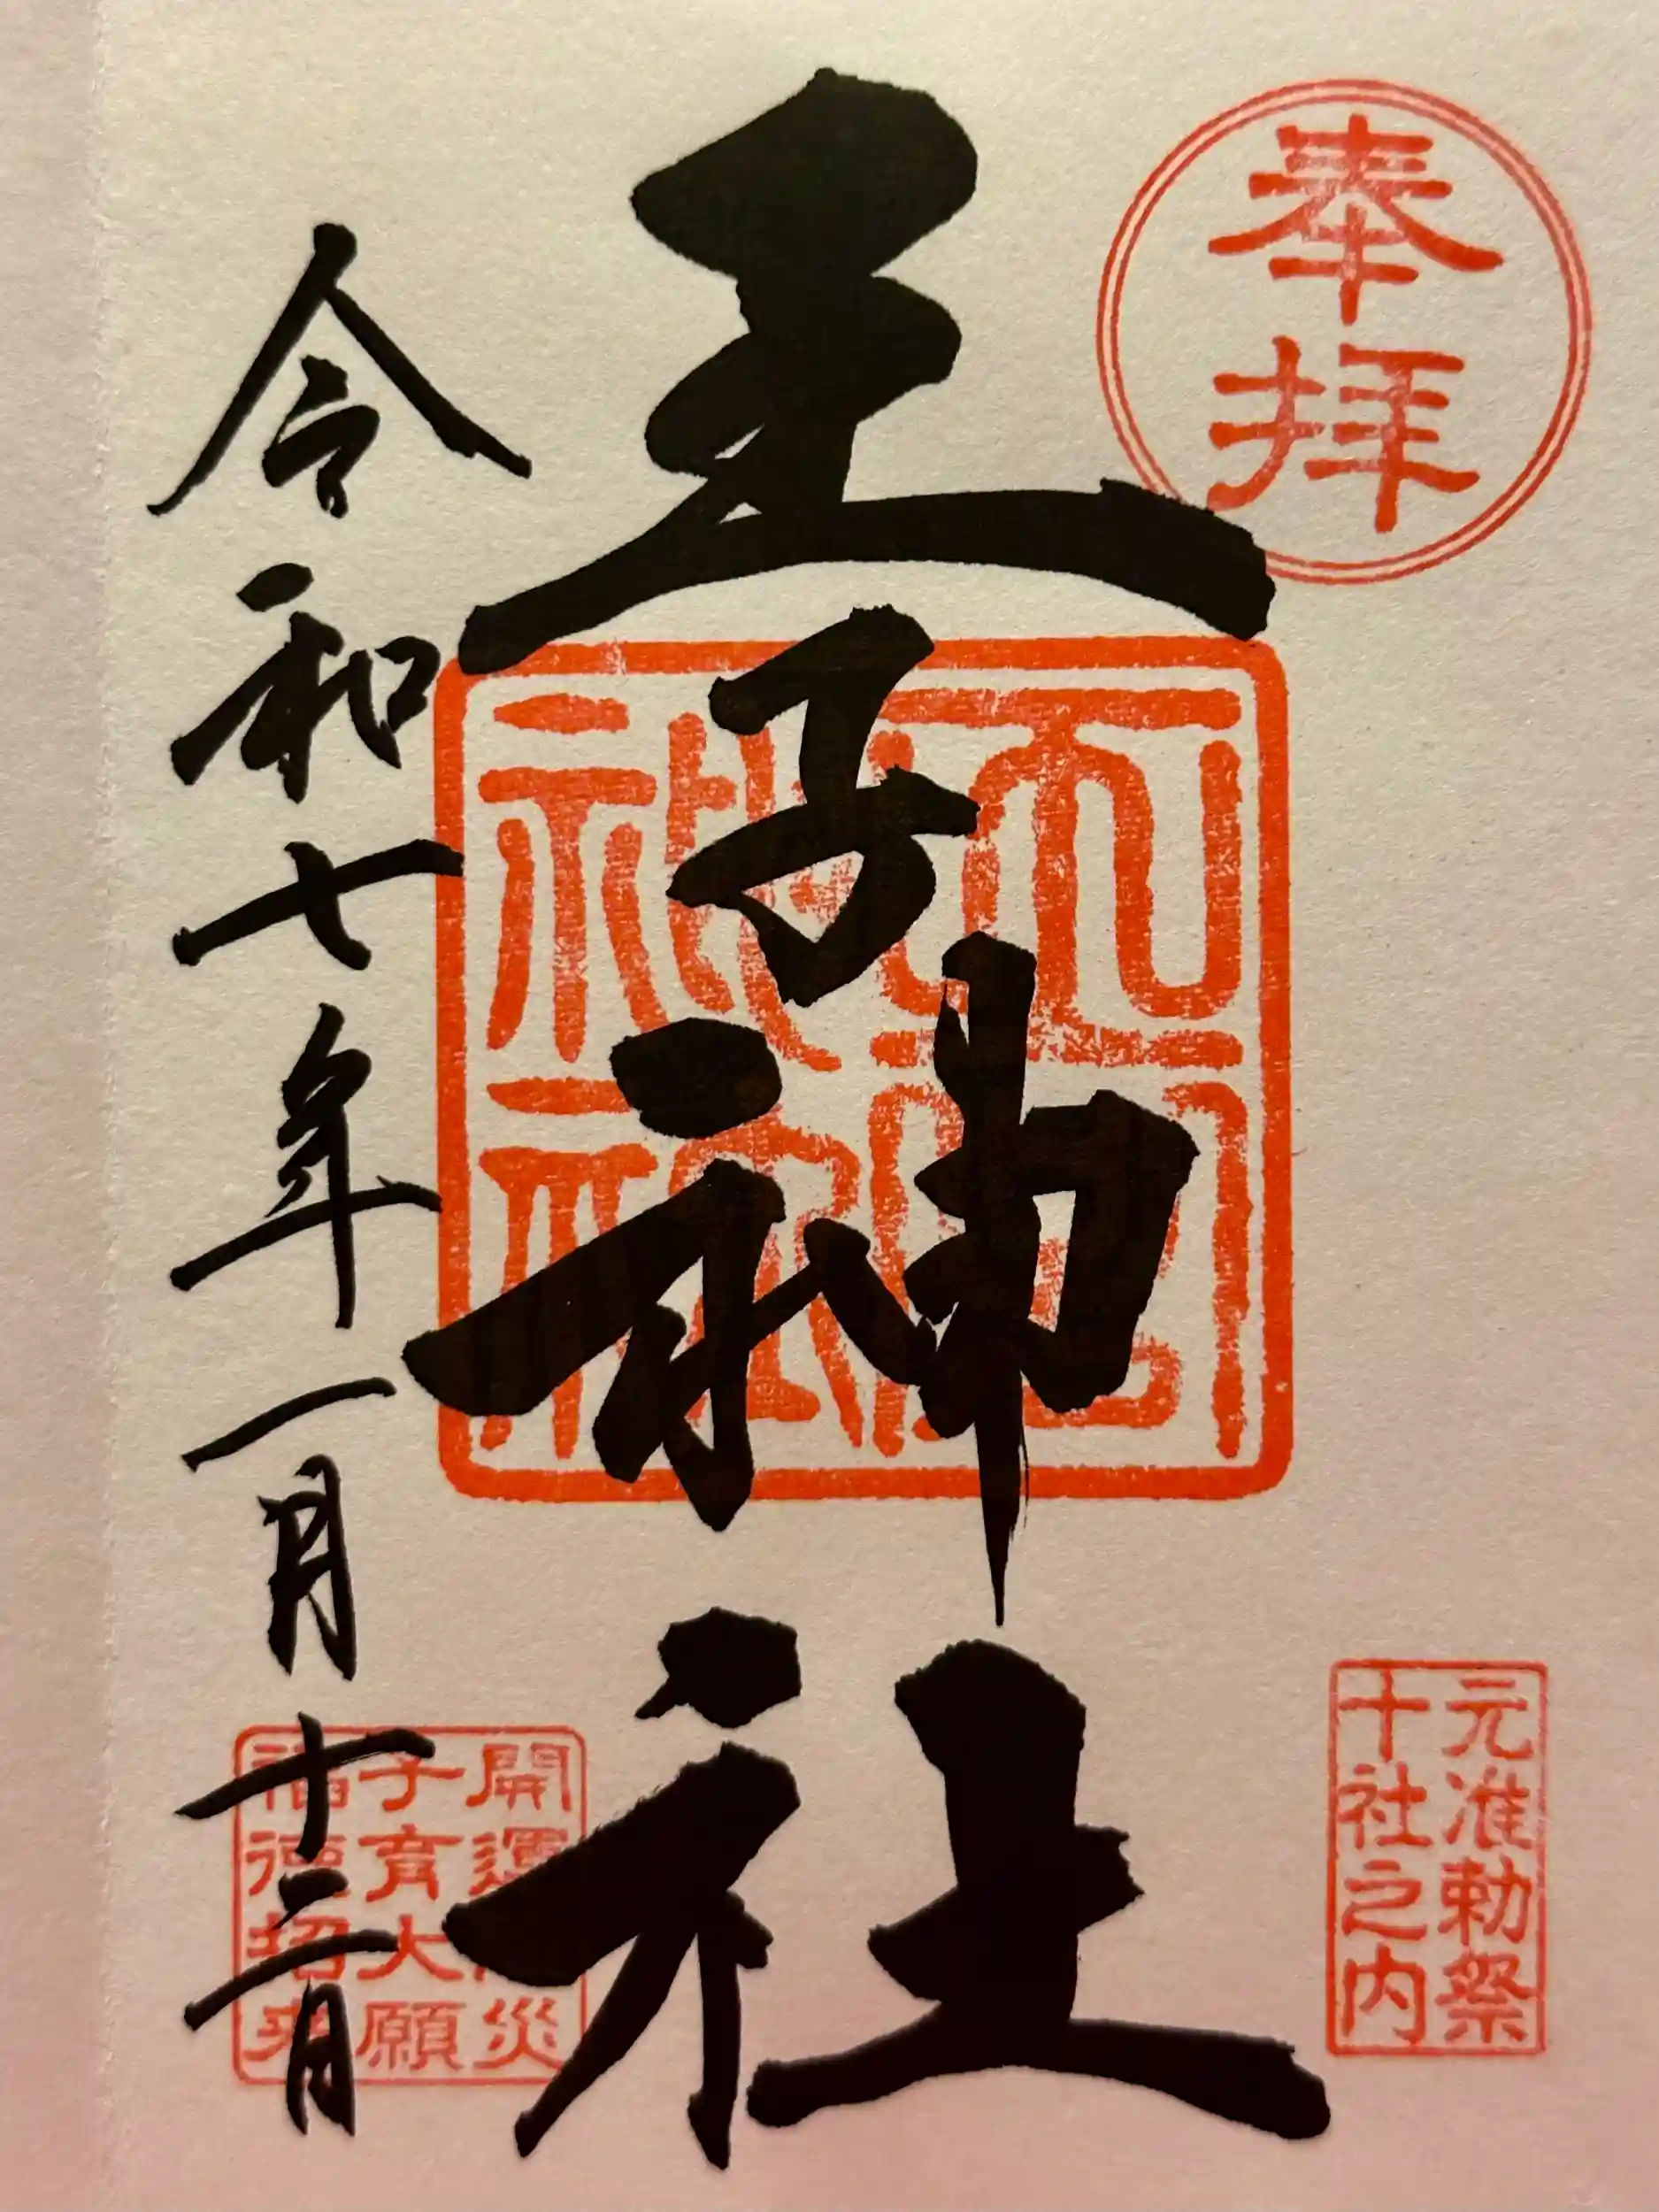 奉拝
元准勅祭
十社之内
王子神社
開運災
子育大願
福徳招来
令和七年一月十二日